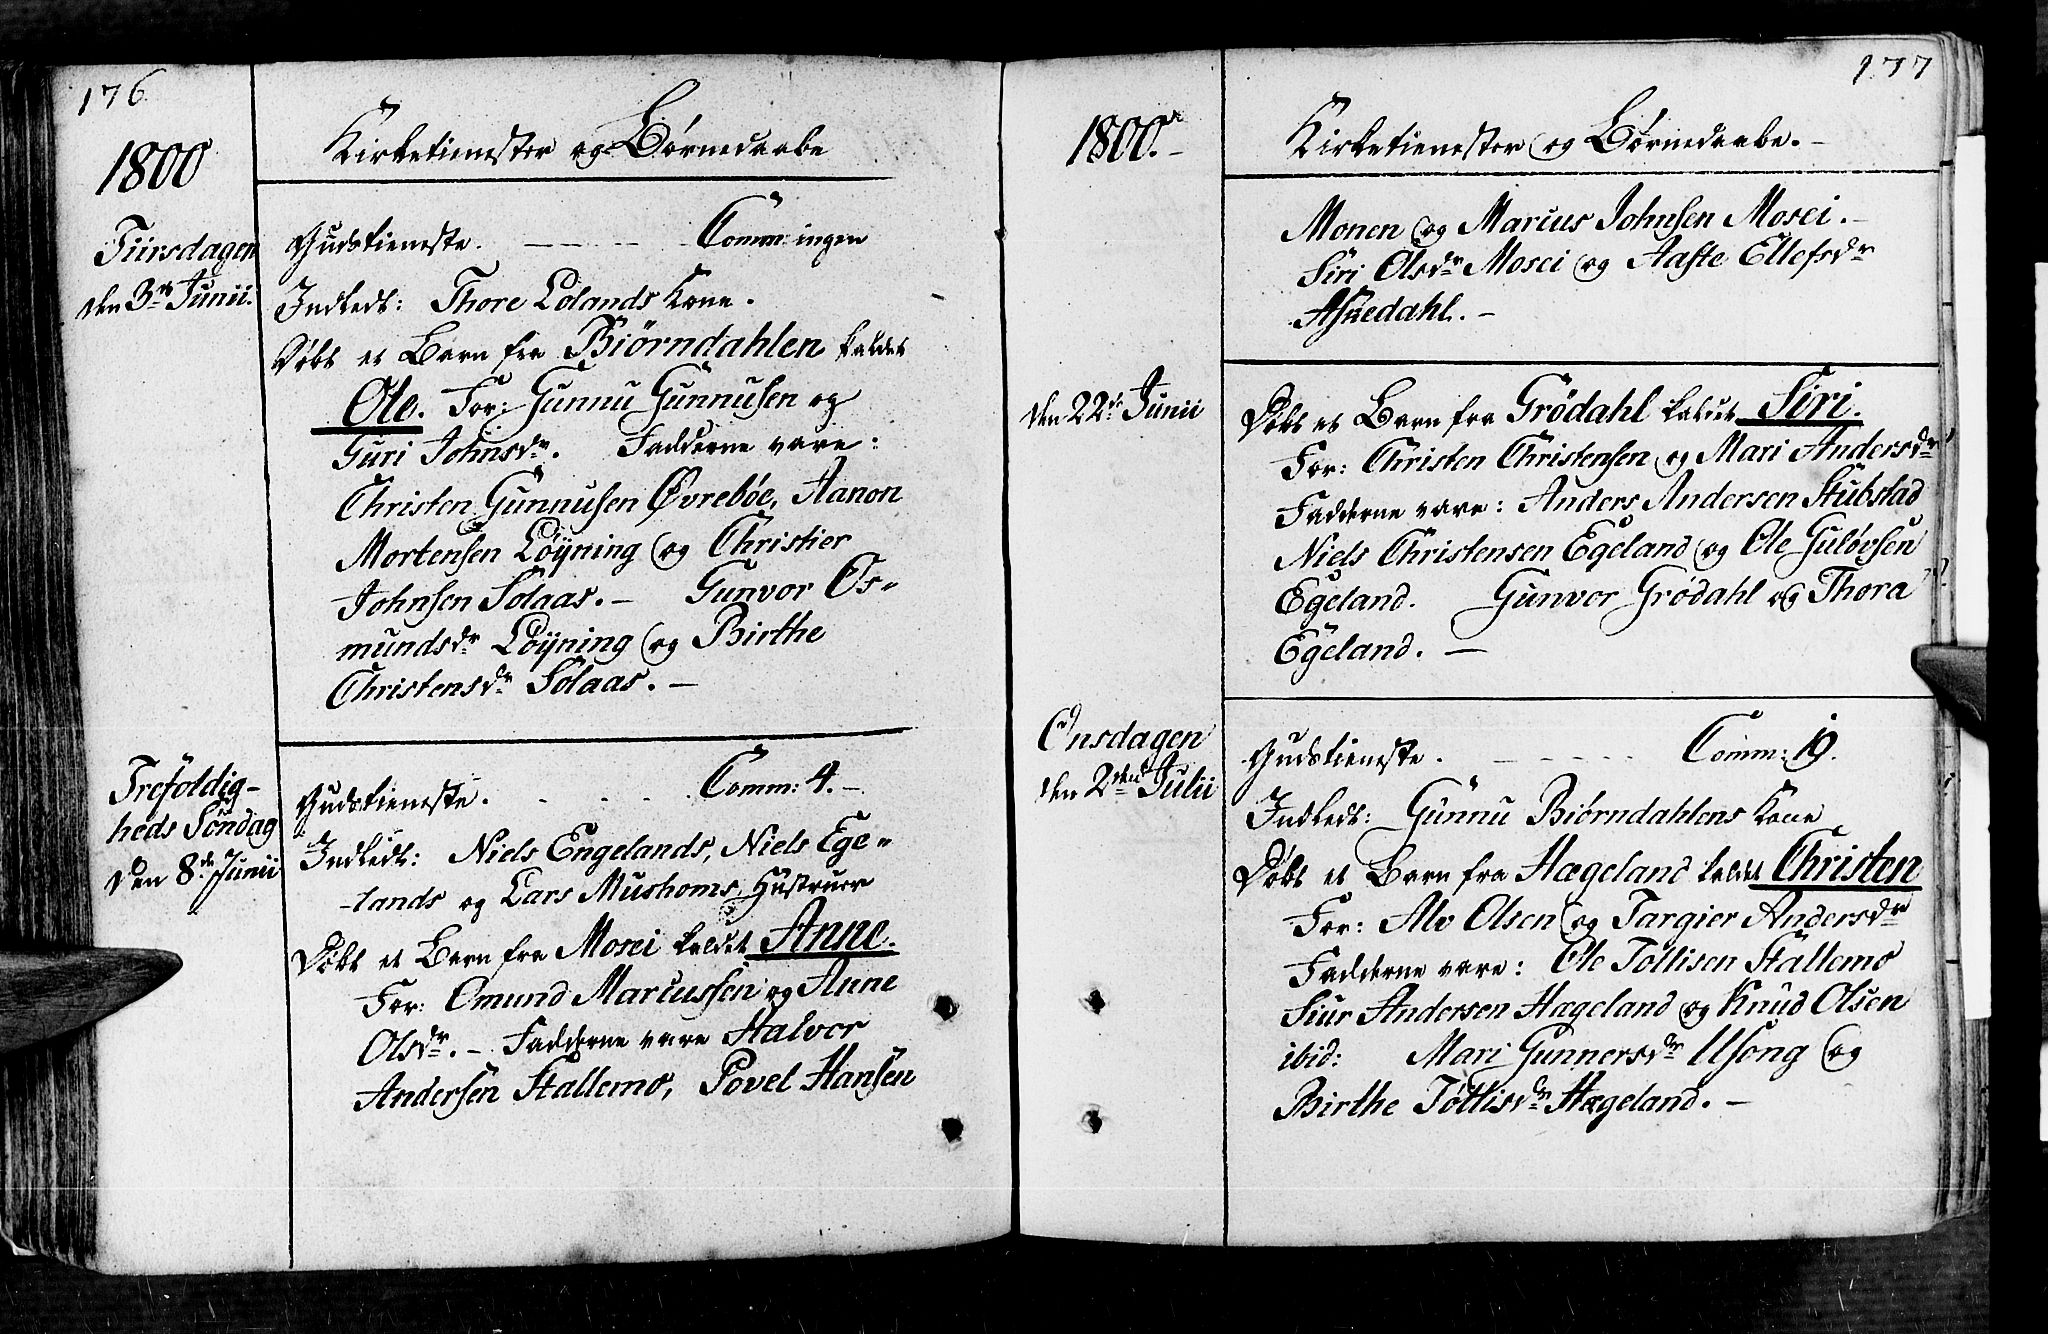 176
1800
Kirketienester og Børnedaabe
Tiirsdagen
den 3die Junii.
Gudstieneste. - - - - Comm: ingen
Indledt: Thore Lolands Kone.
Døbt et Barn fra Biørndahlen kaldet
Ole. For: Gunnu Gunnusen og
Guri Johnsdr. Fadderne vare:
Christen Gunnusen Øvrebøe, Aanon
Mortensen Löyning og Christier
Johnsen Solaas. - Gunvor Os-
mundsdr Löyning og Birthe
Christensdr Solaas. -
Trefoldig-
heds Søndag
den 8de Junii
Gudstieneste. - - - Comm: 4. -
Indledt: Niels Engelands, Niels Ege-
lands og Lars Mushoms Hustruer
Døbt et Barn fra Mosei kaldet Anne.
For: Omund Marcussen og Anne
Olsdr. - Fadderne vare Halvor
Andersen Stallemo, Povel Hansen
177
1800. -
Kirketienester og Børnedaabe. -
Monen og Marcus Johnsen Mosei. -
Siri Olsdr Mosei og Aaste Ellefsdr
Asuedahl. -
den 22de Junii
Døbt et Barn fra Grødahl kaldet Siri.
For: Christen Christensen og Mari Andersdr
Fadderne vare: Anders Andersen Stubstad
Niels Christensen Egeland og Ole Guløvsen
Egeland. Gunvor Grødahl og Thora
Egeland. -
Onsdagen
den 2den Julii
Gudstieneste. - - - - - Comm: 19.
Indledt: Gunnu Biørndahlens Kone
Døbt et Barn fra Hægeland kaldet Christen
For: Alv Olsen og Targier Andersdr
Fadderne vare: Ole Tollisen Stallemo
Siur Andersen Hægeland og Knud Olsen
ibid: Mari Gunnersdr Usong og
Birthe Tøllisdr Hægeland. -